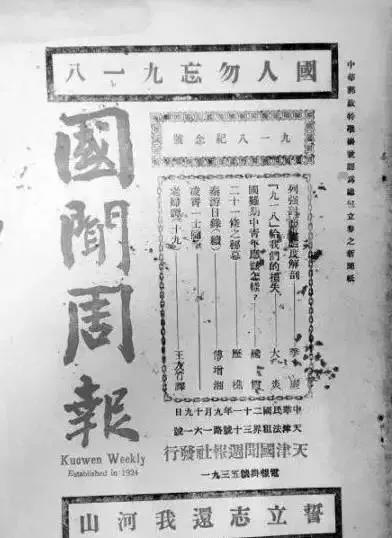 國人勿忘九一八
中華郵政特准掛號認爲總包立券之新聞紙
九一八紀念號
列強對 度解剖
「九一八」給我們的損失 大炎
國難期中青年應該怎樣？
二十一條之秘幕 歷樵
秦游日錄（續） 傅增湘
凌霄一士隨
老婦譚（十九） 王 竹譯
中華民國二十一年九月十九日
天津法租界三十號路一六一號
天津國聞週報社發行
電報掛號五三九一
國聞周報
Kuowen Weekly
Established in 1924
誓立志還我河山